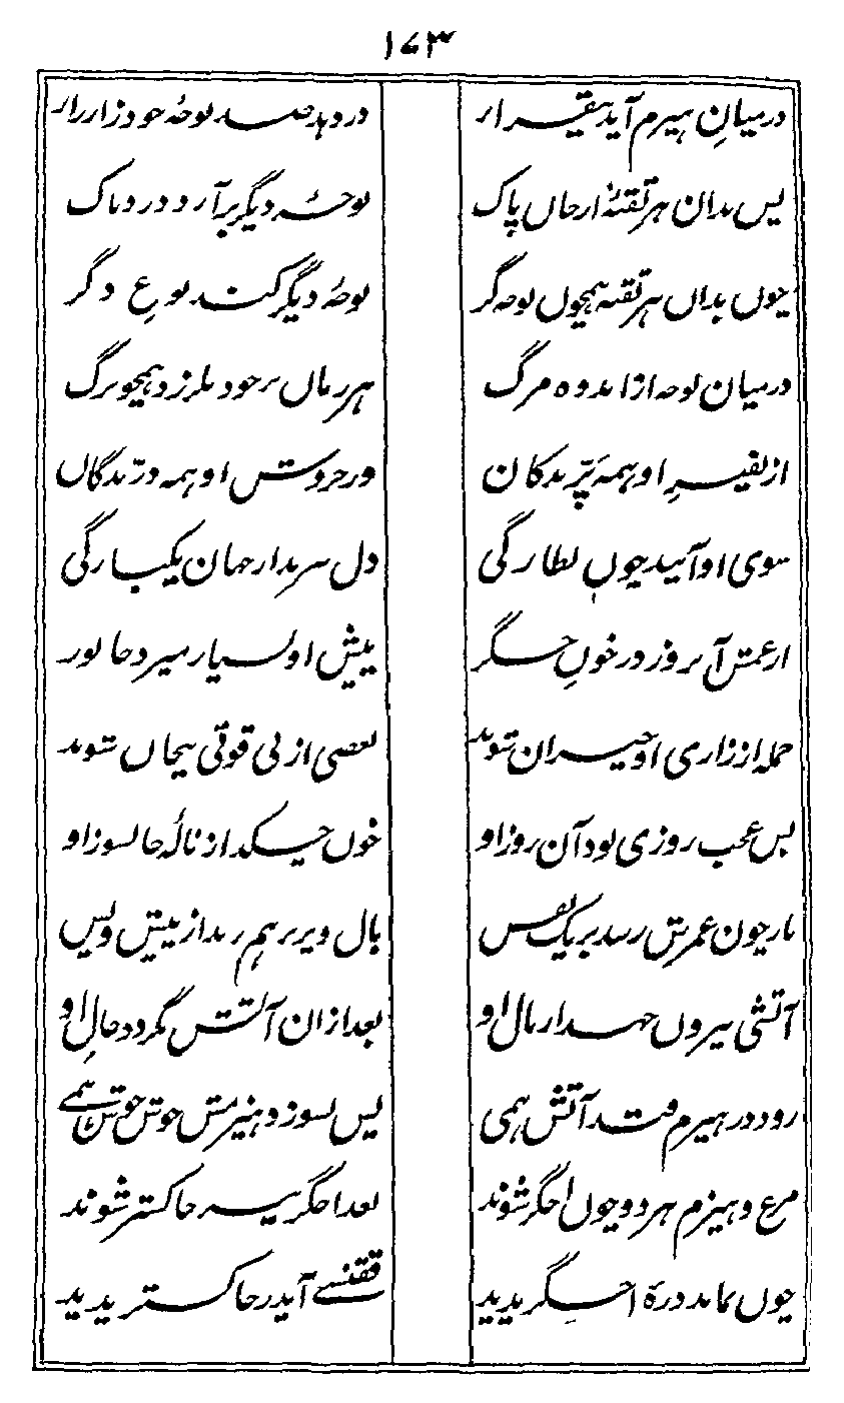 ۱۶۳
درمیانِ هیزم آید بیقرار در دهد صد نوحهٔ خود زار زار
پس بدان هر ثقبهٔ از جان پاک نوحهٔ دیگر برآرد دردناک
چون بدان هر ثقبه همچون نوحه‌گر نوحهٔ دیگر کند نوعِ دگر
درمیان نوحه از اندوه مرگ هر زمان بر خود بلرزد همچو برگ
از نفیرِ او همه پرّندگان وز خروش او همه درّندگان
سوی او آیند چون نظارگی دل ببرند از جهان یکبارگی
از غمش آن روز در خونِ جگر پیش او بسیار میرد جانور
جمله از زاری او حیران شوند بعضی از بی قوتی بیجان شوند
بس عجب روزی بود آن روز او خون چکد از نالهٔ جانسوز او
باز چون عمرش رسد بر یک نفس بال و پر برهم زند از پیش و پس
آتشی بیرون جهد از بال او بعد از آن آتش بگردد حالِ او
زود در هیزم فتد آتش همی پس بسوزد هیزمش خوش خوش همے
مرغ و هیزم هر دو چون اخگر شوند بعد اخگر نیز خاکستر شوند
چون نماند ذرهٔ اخگر پدید ققنسے آید ز خاکستر پدید